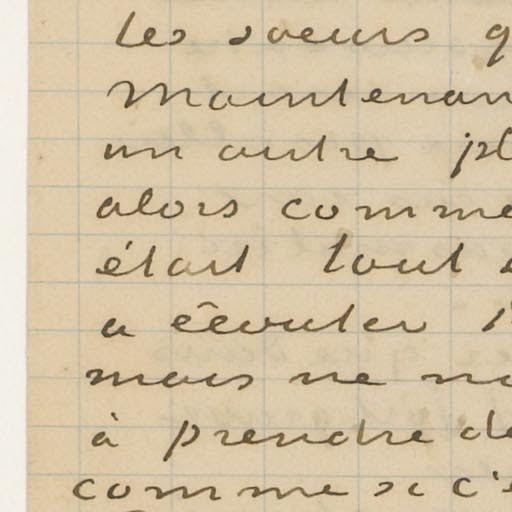 les soeurs q
Maintenan
un autre pl
alors comme
était tout
a écouter
mais ne
à prendre de
comme si c'e